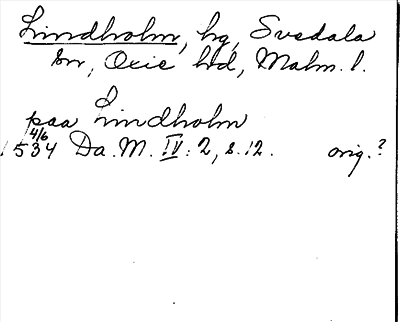 Lindholm, hg, Svedala
sn, Oxie hd, Malm. l.
paa Lindholm
4/6
1534 Da. M. IV: 2, s. 12. orig.?